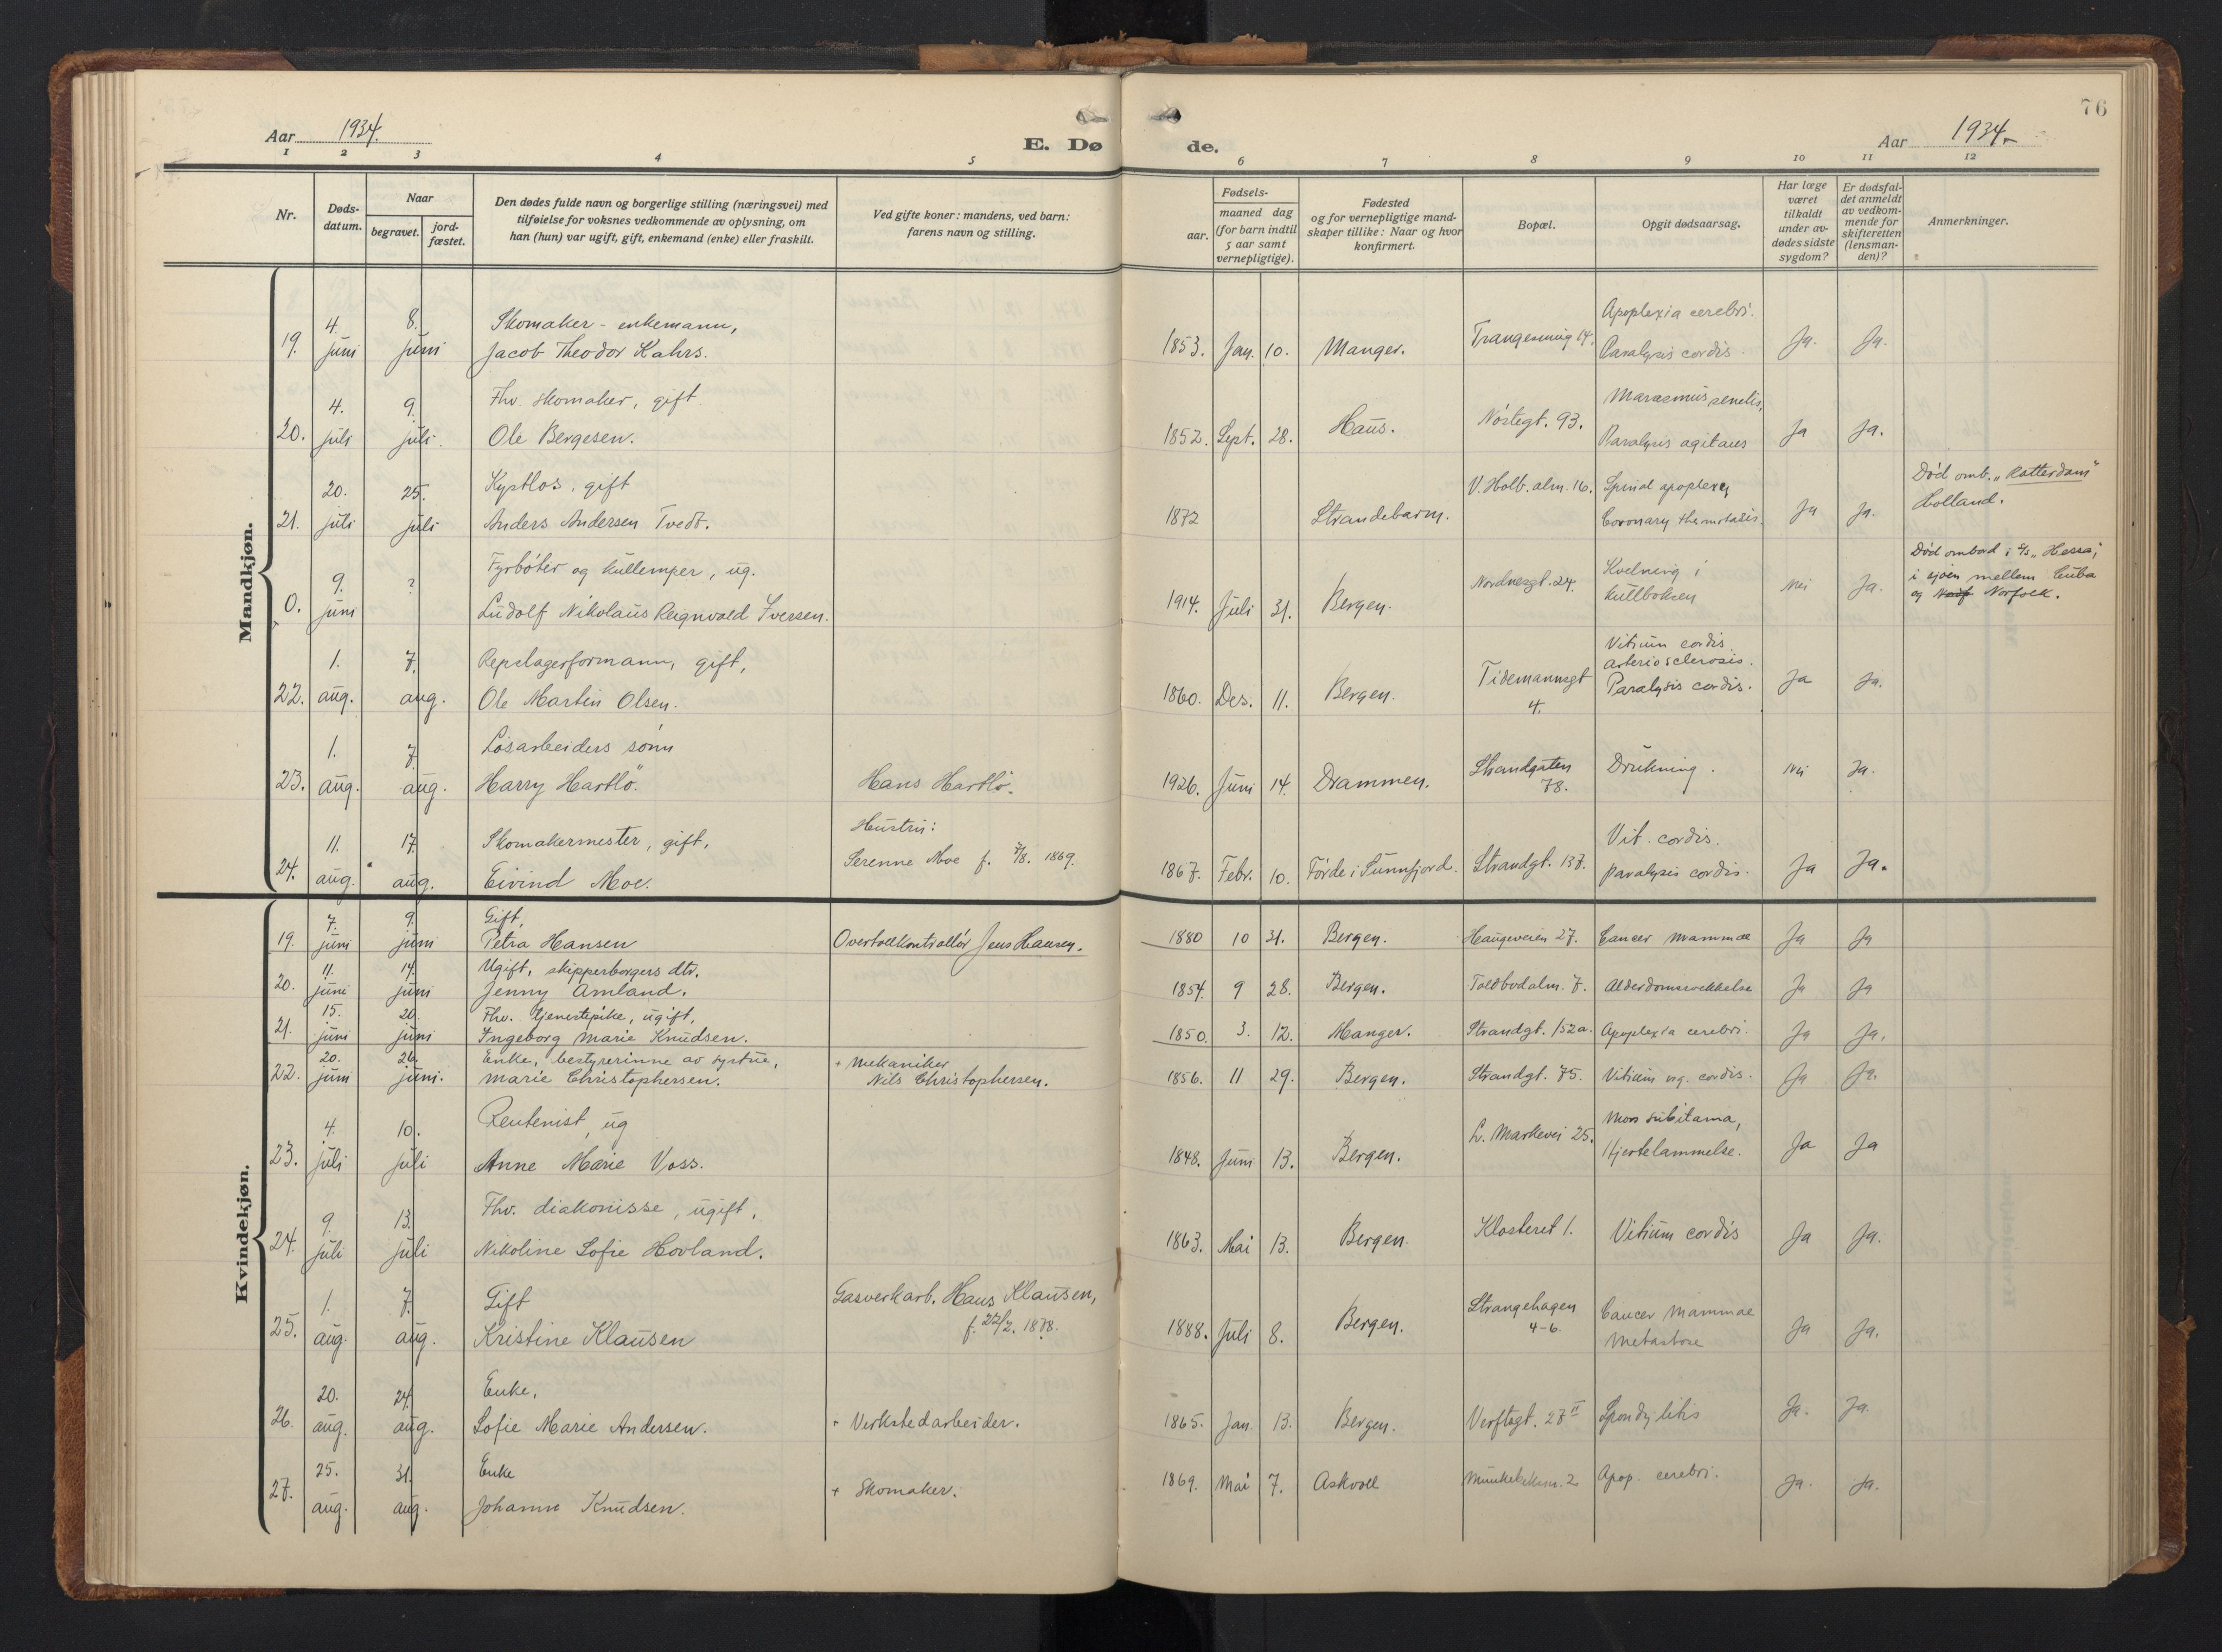 76
Aar 1934.
E. Dø
de.
Aar 1934.
1 2 3 4 5 6 7 8 9 10 11 12
Nr.
Døds-
datum.
Naar
begravet.
jord-
fæstet.
Den dødes fulde navn og borgerlige stilling (næringsvei) med
tilføielse for voksnes vedkommende av oplysning, om
han (hun) var ugift, gift, enkemand (enke) eller fraskilt.
Ved gifte koner: mandens, ved barn:
farens navn og stilling.
Fødsels-
aar.
maaned dag
(for barn indtil
5 aar samt
vernepligtige).
Fødested
og for vernepligtige mand-
skaper tillike: Naar og hvor
konfirmert.
Bopæl.
Opgit dødsaarsag.
Har læge
været
tilkaldt
under av-
dødes sidste
sygdom?
Er dødsfal-
det anmeldt
av vedkom-
mende for
skifteretten
(lensman-
den)?
Anmerkninger.
Mandkjøn.
19. 4. juni 8. juni
Skomaker - enkemann,
Jacob Theodor Kahrs.
1853. Jan. 10. Manger.
14.
Apoplexia cerebri.
Paralysis cordis.
Ja. Ja.
20. 4. juli 9. juli.
Fhv. skomaker, gift
Ole Bergesen.
1852. Sept. 28. Haus.
Nöstegt. 93.
Marasmus senilis,
Paralysis agitans
Ja Ja.
21. 20. juli 25. juli
Kyptlos, gift
Anders Andersen Tvedt.
1872 Strandebarm.
V. Holb. alm. 16.
Spinal apoplexy
Coronary
Ja Ja.
Död omb. "Rotterdam"
Holland.
0. 9. juni ?
Fyrböter og kullemper, ug.
Ludolf Nikolaus Reignvald Iversen.
1914. Juli 31. Bergen.
Nordnesgt. 24.
Kvelning i
kullboksen
Nei Ja.
Död ombord i s/s "Hessa,"
i sjöen mellem Cuba
og Norf Norfolk.
22. 1. aug. 7. aug.
Repslagerformann, gift,
Ole Martin Olsen.
1860. Des. 11. Bergen.
Tidemannsgt
4.
Vitium cordis.
Arteriosclerosis.
Paralysis cordis.
Ja Ja.
23. 1. aug. 7. aug.
Lösarbeiders sönn
Harry Hartlö.
Hans Hartlö.
1926. Juni 14. Drammen.
Strandgaten
78.
Drukning.
Nei Ja.
24. 11. aug. 17. aug.
Skomakermester, gift,
Eivind Moe.
Hustru:
Serenne Moe f. 7/8. 1869.
1867. Febr. 10. Förde i Sunnfjord.
Strandgt. 137.
Vit. cordis.
paralysis cordis.
Ja Ja.
Kvindekjøn.
19. 7. juni 9. juni
Gift,
Petra Hansen
Overtollkontrollör Jens Hansen.
1880 10 31. Bergen.
Haugeveien 27.
Cancer mammae
Ja Ja
20. 11. juni 14. juni
Ugift, skipperborgers dtr.
Jenny Amland.
1854. 9 28. Bergen.
Toldbodalm. 7.
Alderdomssvekkelse
Ja Ja
21. 15. juni 20. juni
Fhv. tjenestepike, ugift,
Ingeborg Marie Knudsen.
1850. 3. 12. Manger.
Strandgt. 152a.
Apoplexia cerebri.
Ja Ja.
22. 20. juni 26. juni.
Enke, bestyrerinne av systue,
Marie Christophersen.
+ Mekaniker
Nils Christophersen.
1856. 11 29. Bergen.
Strandgt. 75.
Vitium org. cordis.
Ja Ja.
23. 4. juli 10. juli
Rentenist, ug
Anne Marie Voss.
1848. Juni 13. Bergen.
L. Markevei 25.
Mors subitama,
Hjertelammelse.
Ja Ja
24. 9. juli 13. juli
Fhv. diakonisse, ugift,
Nikoline Sofie Hovland.
1863. Mai 13. Bergen.
Klosteret 1.
Vitium cordis
Ja Ja.
25. 1. aug. 7. aug.
Gift
Kristine Klausen
Gasverkarb. Hans Klausen,
f. 22/2. 1878.
1888. Juli 8. Bergen.
Strangehagen
4-6.
Cancer Mammae
Metastase
Ja Ja.
26. 20. aug. 24. aug.
Enke,
Sofie Marie Andersen.
+ Verkstedarbeider.
1865. Jan. 13. Bergen.
Verftsgt. 27 II
Spondylitis
Ja. Ja.
27. 25. aug. 31. aug.
Enke
Johanne Knudsen.
+ Skomaker.
1869. Mai 7. Askvoll
2
Apop. cerebri.
Ja. Ja.